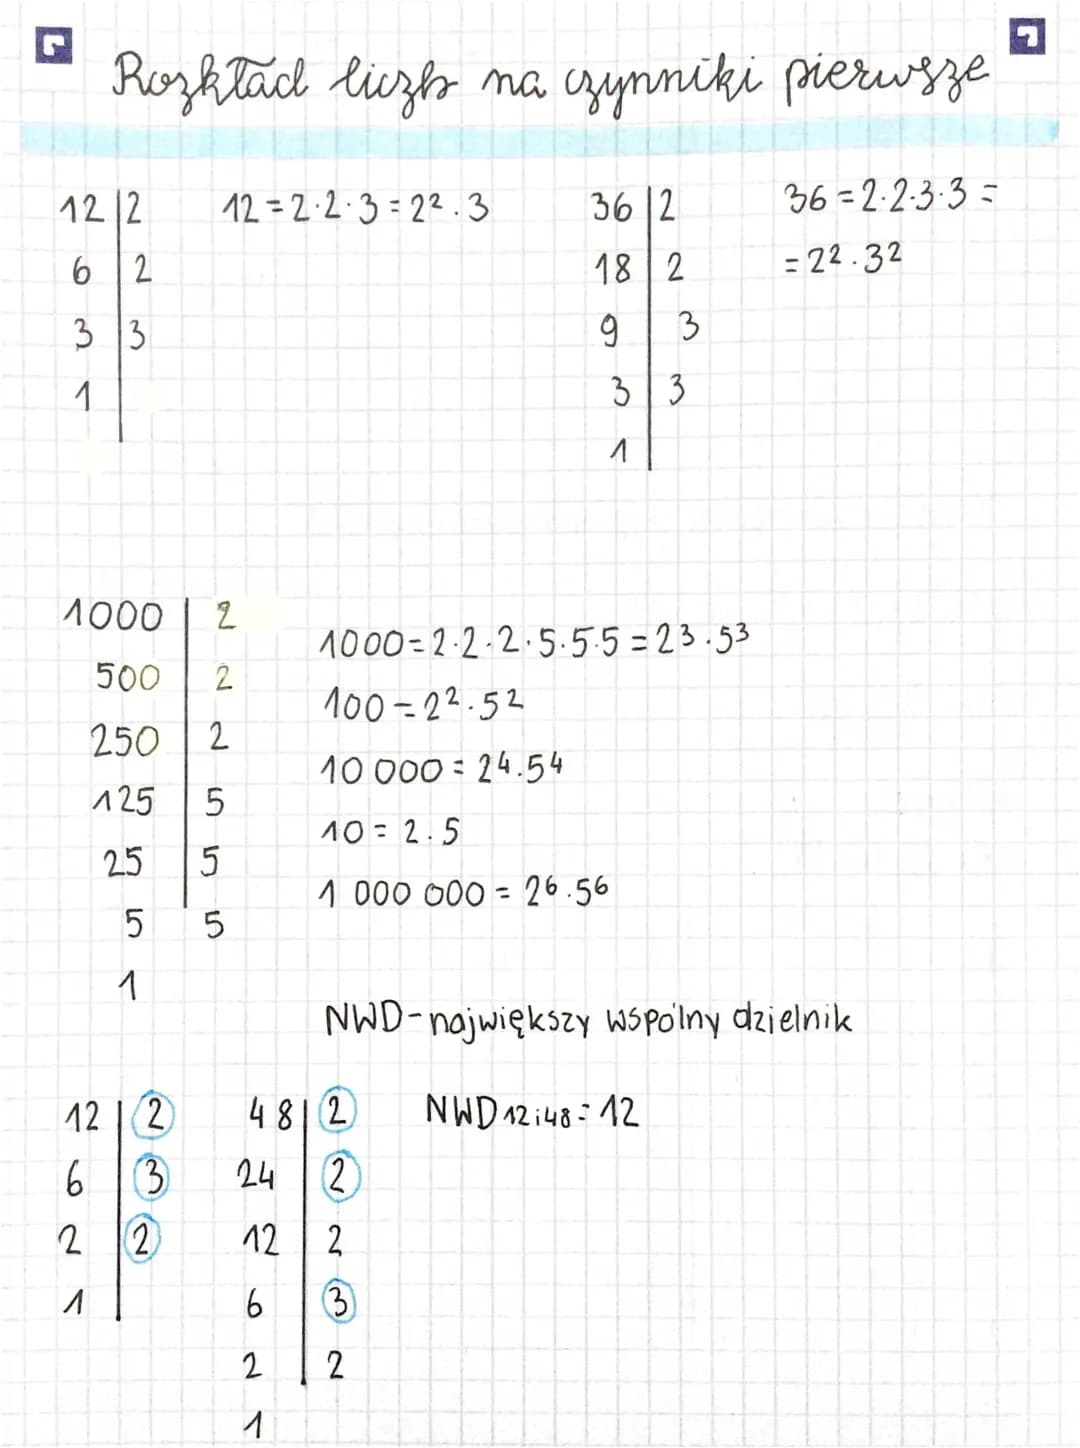 Rozkład liczb na czynniki pierwsze
12 | 2
6 | 2
3 | 3
1 |
12 = 2·2·3 = 2²·3
36 | 2
18 | 2
9 | 3
3 | 3
1 |
36 = 2·2·3·3 =
= 2²·3²
1000 | 2
500 | 2
250 | 2
125 | 5
25 | 5
5 5
1
1000 = 2·2·2·5·5·5 = 2³·5³
100 = 2²·5²
10 000 = 2⁴·5⁴
10 = 2·5
1 000 000 = 2⁶·5⁶
NWD - największy wspólny dzielnik
12 | 2
6 | 3
2 | 2
1 |
48 | 2
24 | 2
12 | 2
6 | 3
2 | 2
1
NWD 12 i 48 = 12